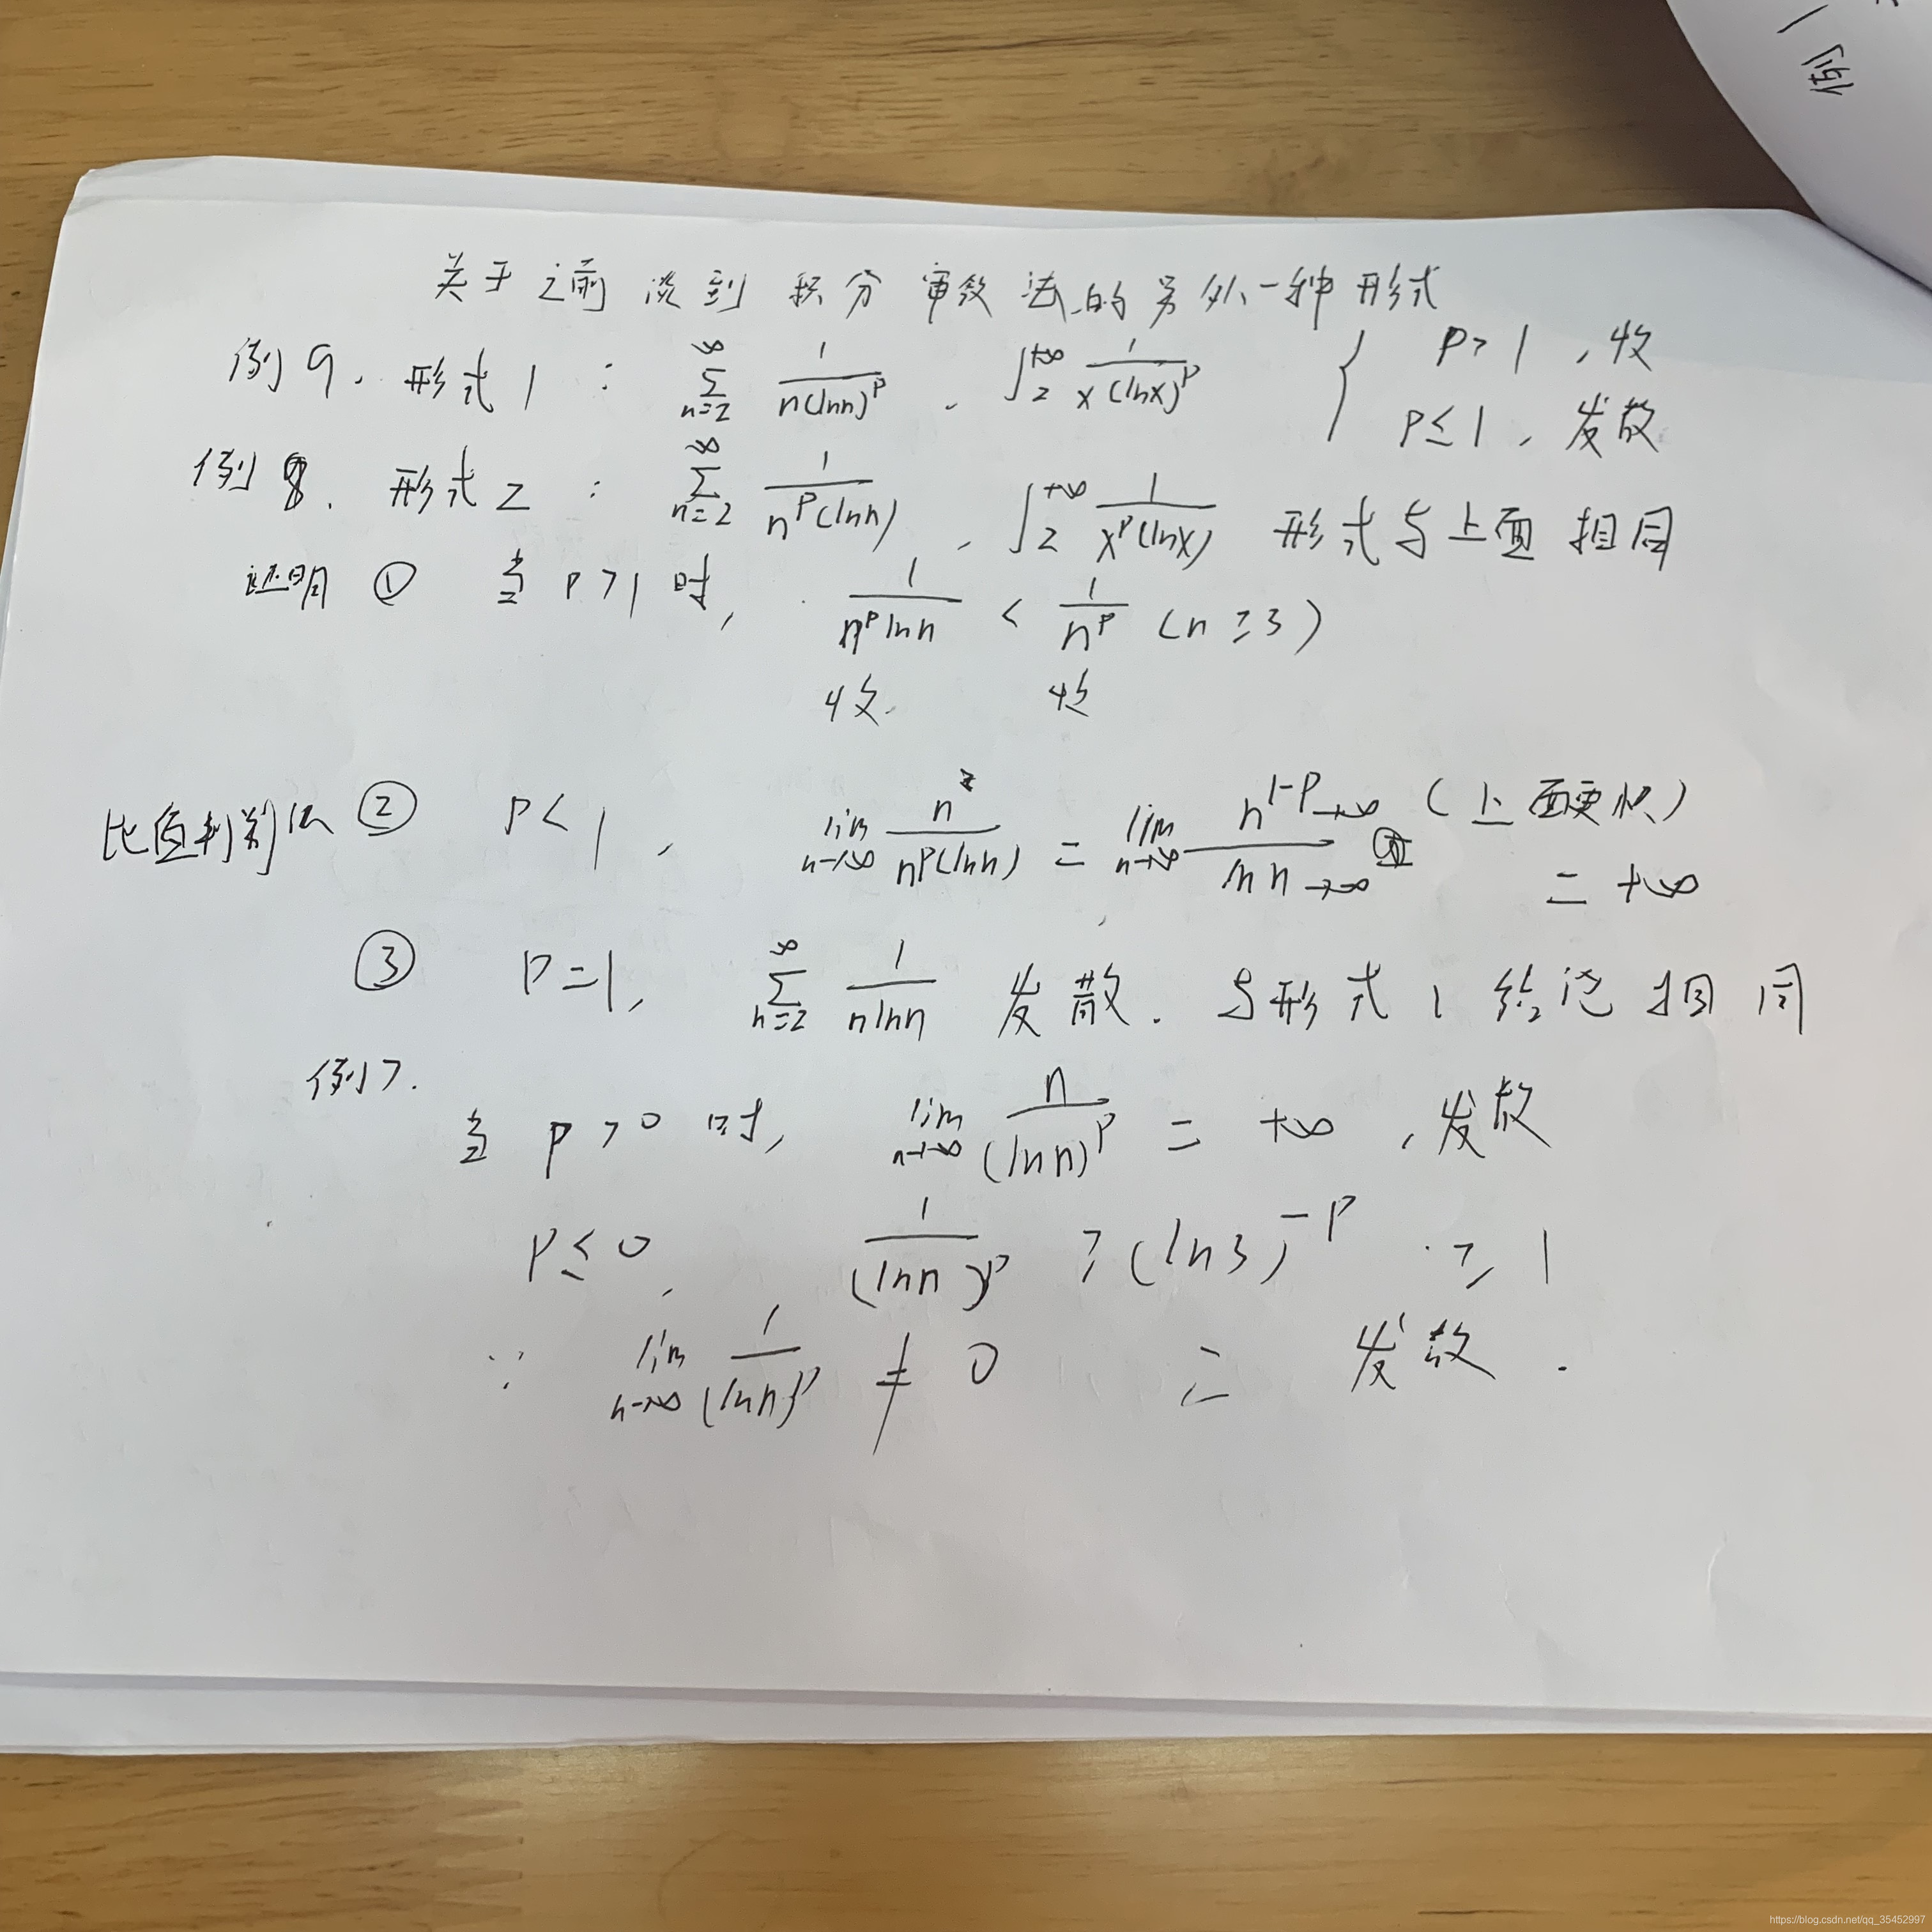 例1
关于之前谈到积分审敛法的另外一种形式
例9. 形式1: \sum_{n=2}^{\infty} \frac{1}{n(\ln n)^p}, \int_2^{+\infty} \frac{1}{x(\ln x)^p} { p>1, 收
p≤1, 发散
例8. 形式2: \sum_{n=2}^{\infty} \frac{1}{n^p(\ln n)}, \int_2^{+\infty} \frac{1}{x^p(\ln x)} 形式与上面相同
证明 ① 当p>1时, \frac{1}{n^p \ln n} < \frac{1}{n^p} (n≥3)
收. 收
比值判别法 ② p<1, \lim_{n→∞} \frac{n}{n^p(\ln n)} = \lim_{n→∞} \frac{n^{1-p}→∞}{\ln n→∞} (上面更快)
=+∞
③ p=1, \sum_{n=2}^{\infty} \frac{1}{n \ln n} 发散. 与形式1结论相同
例7.
当p>0时, \lim_{n→∞} \frac{n}{(\ln n)^p} = +∞, 发散
p≤0, \frac{1}{(\ln n)^p} ≥ (\ln 3)^{-p} ≥ 1
∵ \lim_{n→∞} \frac{1}{(\ln n)^p} ≠ 0 ∴ 发散.
https://blog.csdn.net/qq_35452997